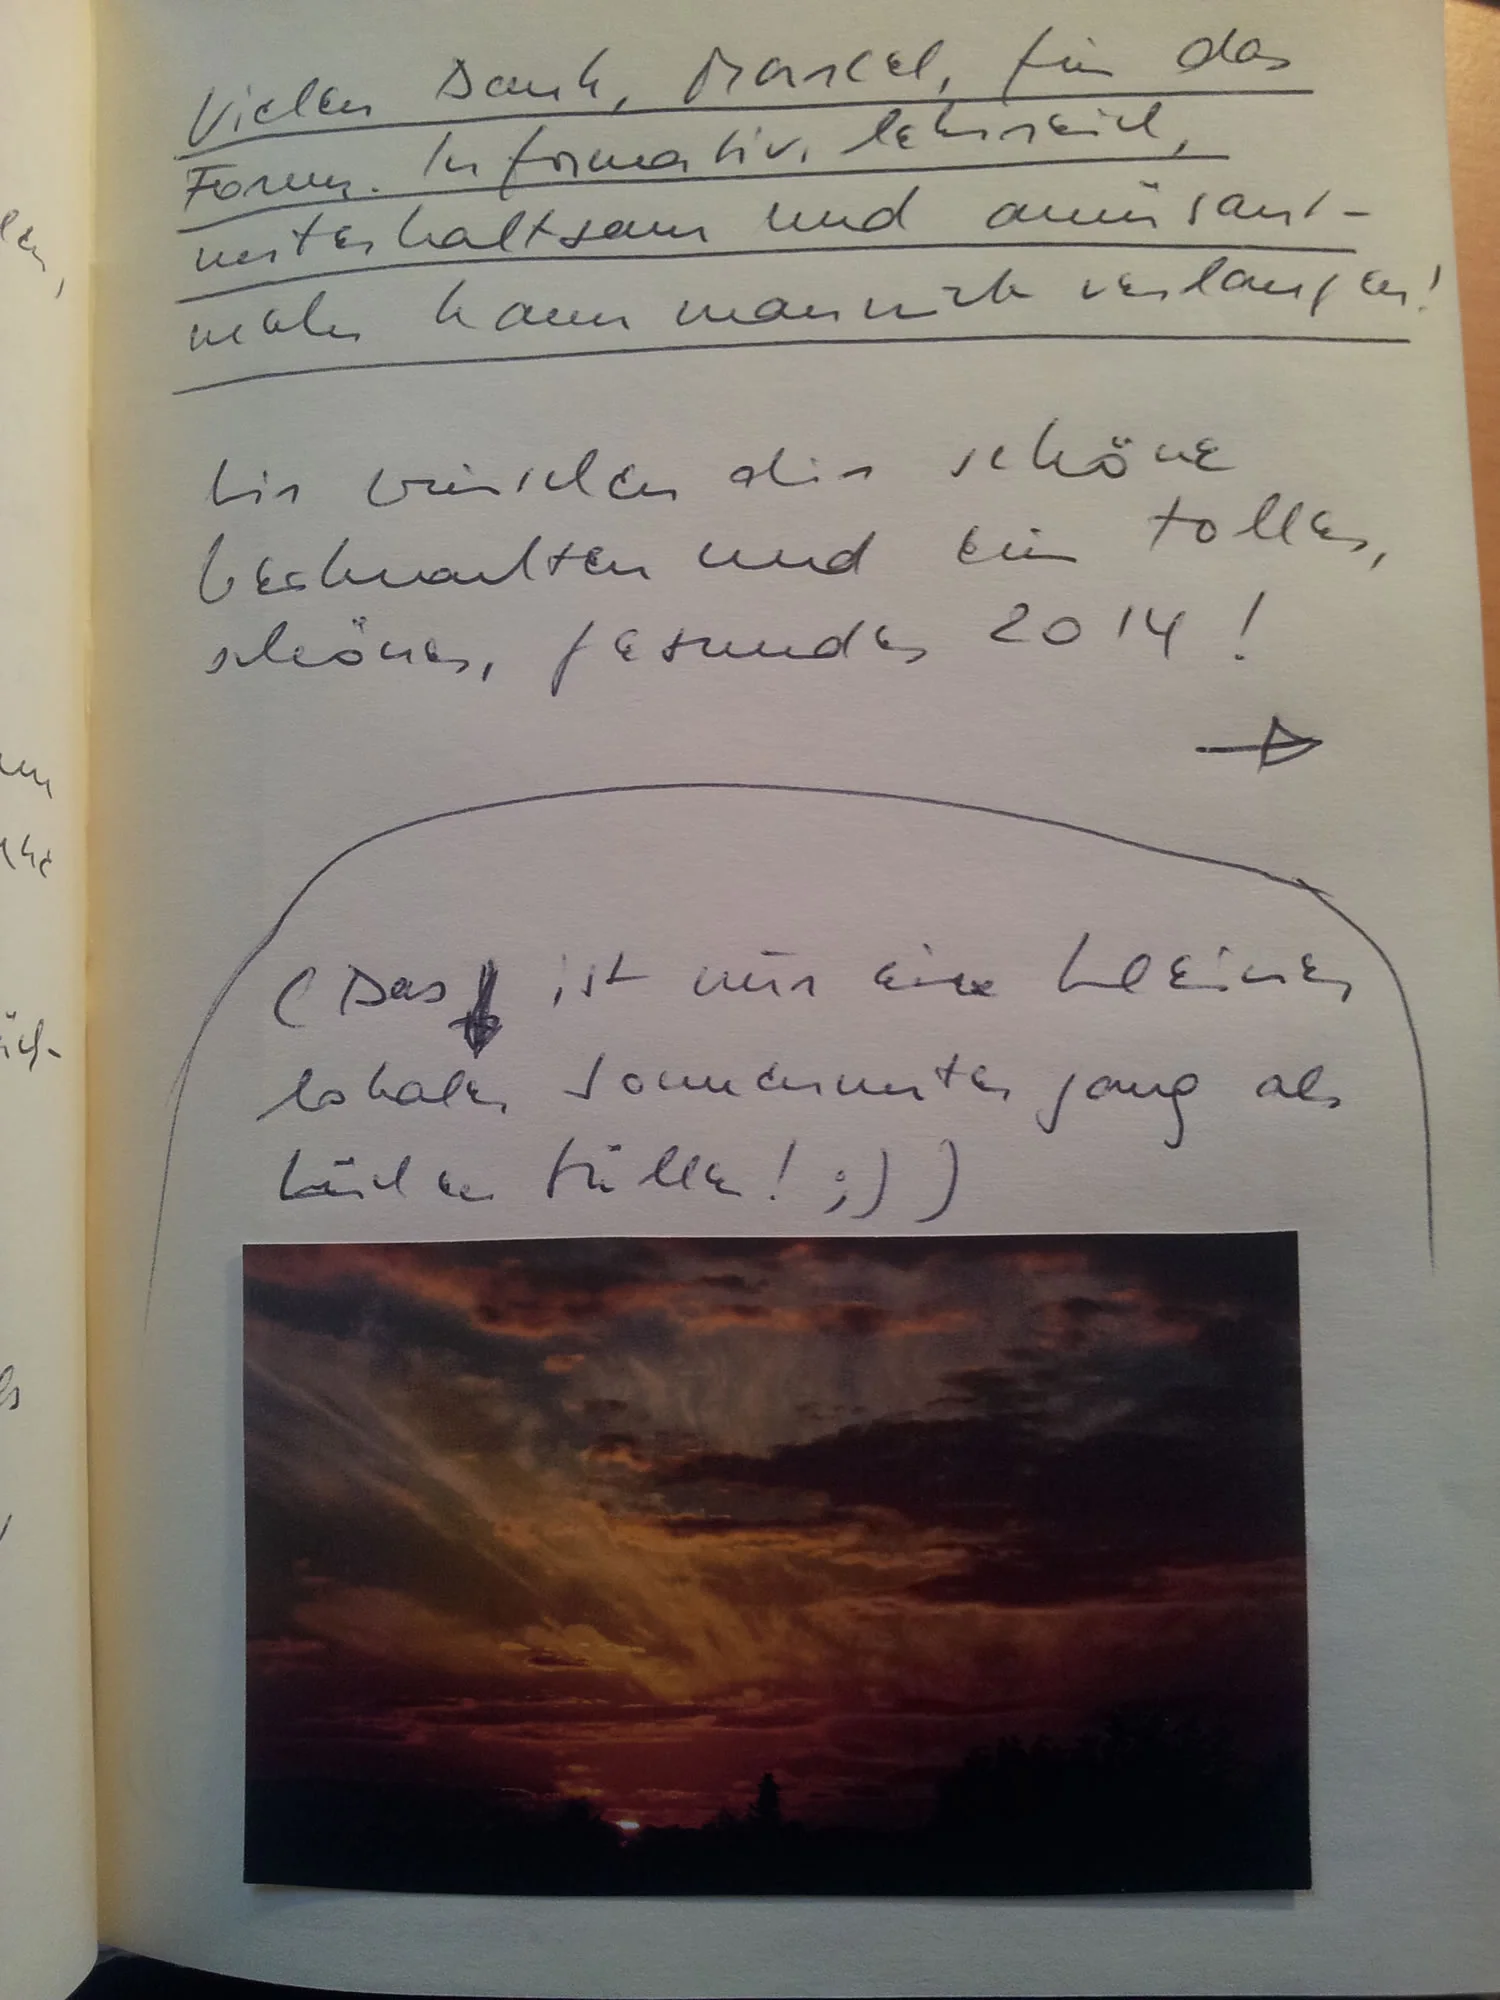 Vielen Dank, Marcel, für das
Forum. Informativ, lehrreich,
unterhaltsam und amüsant -
mehr kann man nicht verlangen!
Wir wünschen dir schöne
Weihnachten und ein tolles,
schönes, gesundes 2014!
(Das ist nur ein kleiner
lokaler Sonnenuntergang als
Lückenfüller! ;) )